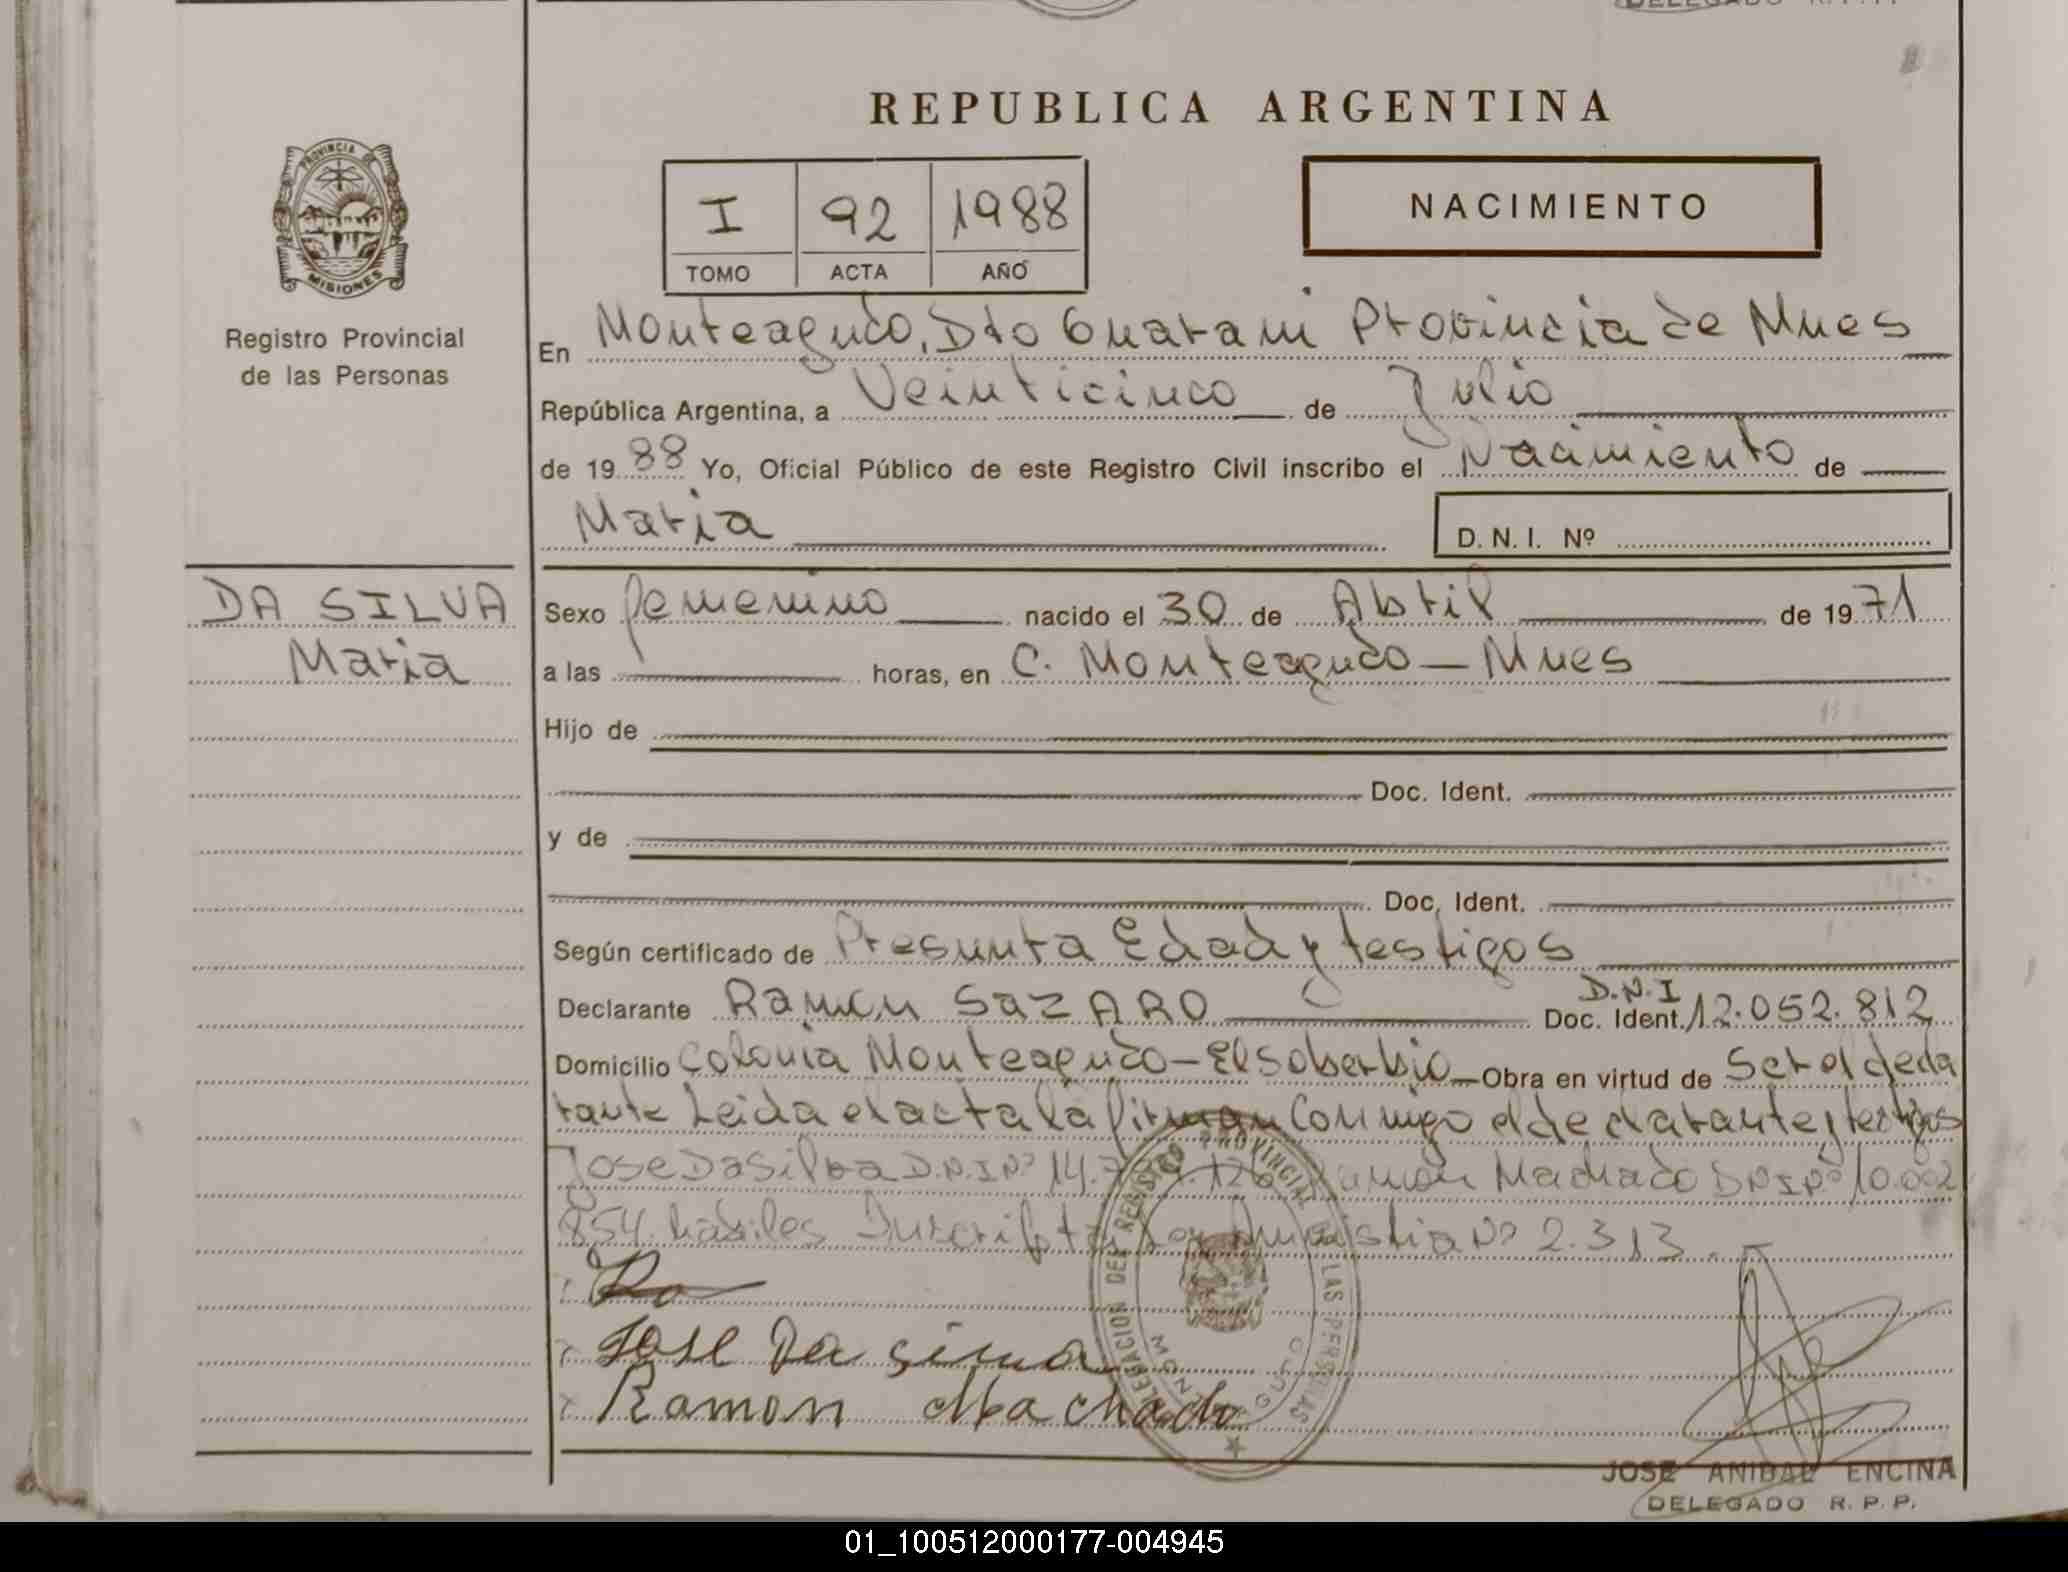 DELEGADO R.P.P.
REPUBLICA ARGENTINA
PROVINCIA DE
MISIONES
Registro Provincial
de las Personas
I 92 1988
TOMO ACTA AÑO
NACIMIENTO
En Monteagudo, Dto Guarani Provincia de Mnes
República Argentina, a Veinticinco de Julio
de 1988 Yo, Oficial Público de este Registro Civil inscribo el Nacimiento de
Maria
D. N. I. Nº
DA SILVA
Maria
Sexo femenino nacido el 30 de Abril de 1971
a las horas, en C. Monteagudo - Mnes
Hijo de
Doc. Ident.
y de
Doc. Ident.
Según certificado de Presunta Edad y testigos
Declarante Ramon SazARO D.N.I
Doc. Ident. 12.052.812
Domicilio Colonia Monteagudo - El Soberbio Obra en virtud de Ser el decla
rante Leida el acta la firman Conmigo el declarante y testigos
Jose Da Silva D.N.I Nº 14. 126 Ramon Machado DNI Nº 10.002
854. habiles Inscripta por Amnistia Nº 2.313.
Jose Da silva
Ramon Machado
DELEGACION DEL REGISTRO PROVINCIAL DE LAS PERSONAS
MONTEAGUDO
JOSE ANIBAL ENCINA
DELEGADO R. P. P.
01_100512000177-004945